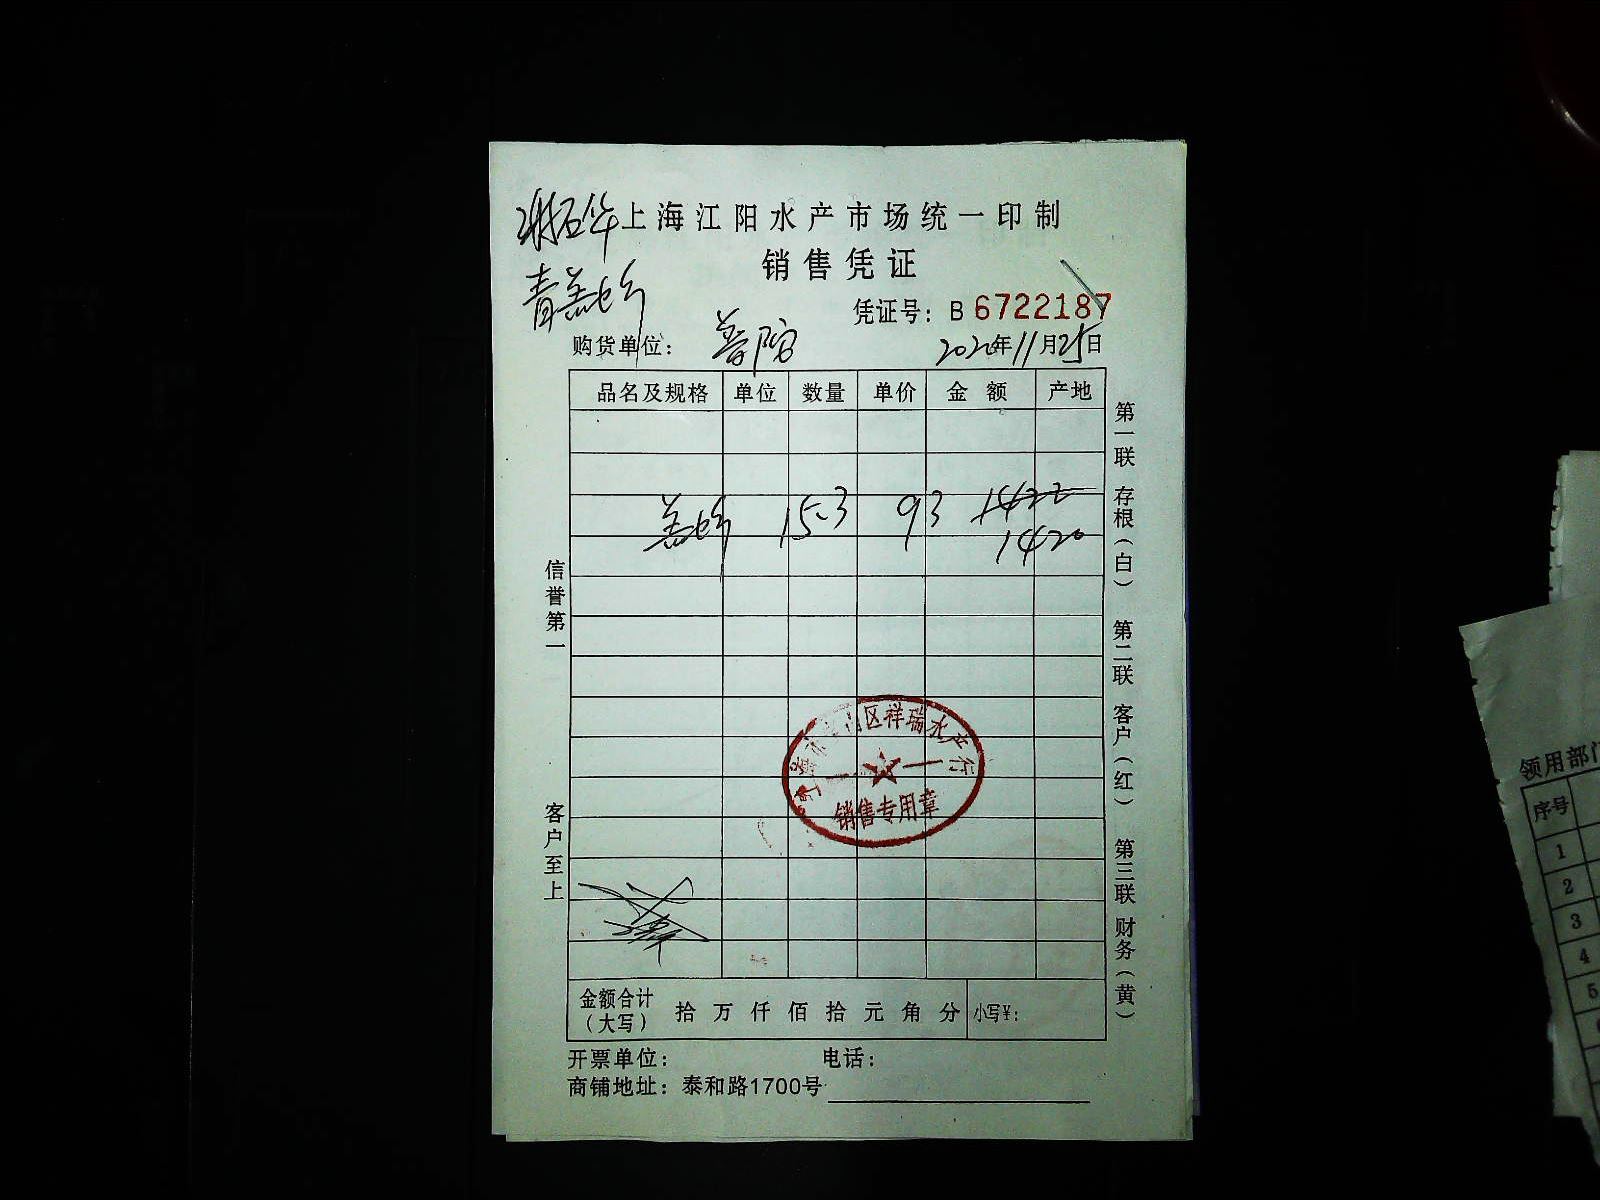 上海江阳水产市场统一印制
销售凭证
凭证号：B 6722187
购货单位：普陀
2020年11月25日
品名及规格 单位 数量 单价 金额 产地
15.3 93 1422
1420
信誉第一 客户至上
第一联 存根（白） 第二联 客户（红） 第三联 财务（黄）
区祥瑞水产行
销售专用章
金额合计（大写） 拾 万 仟 佰 拾 元 角 分 小写¥：
开票单位： 电话：
商铺地址：泰和路1700号
领用部门
序号
1
2
3
4
5